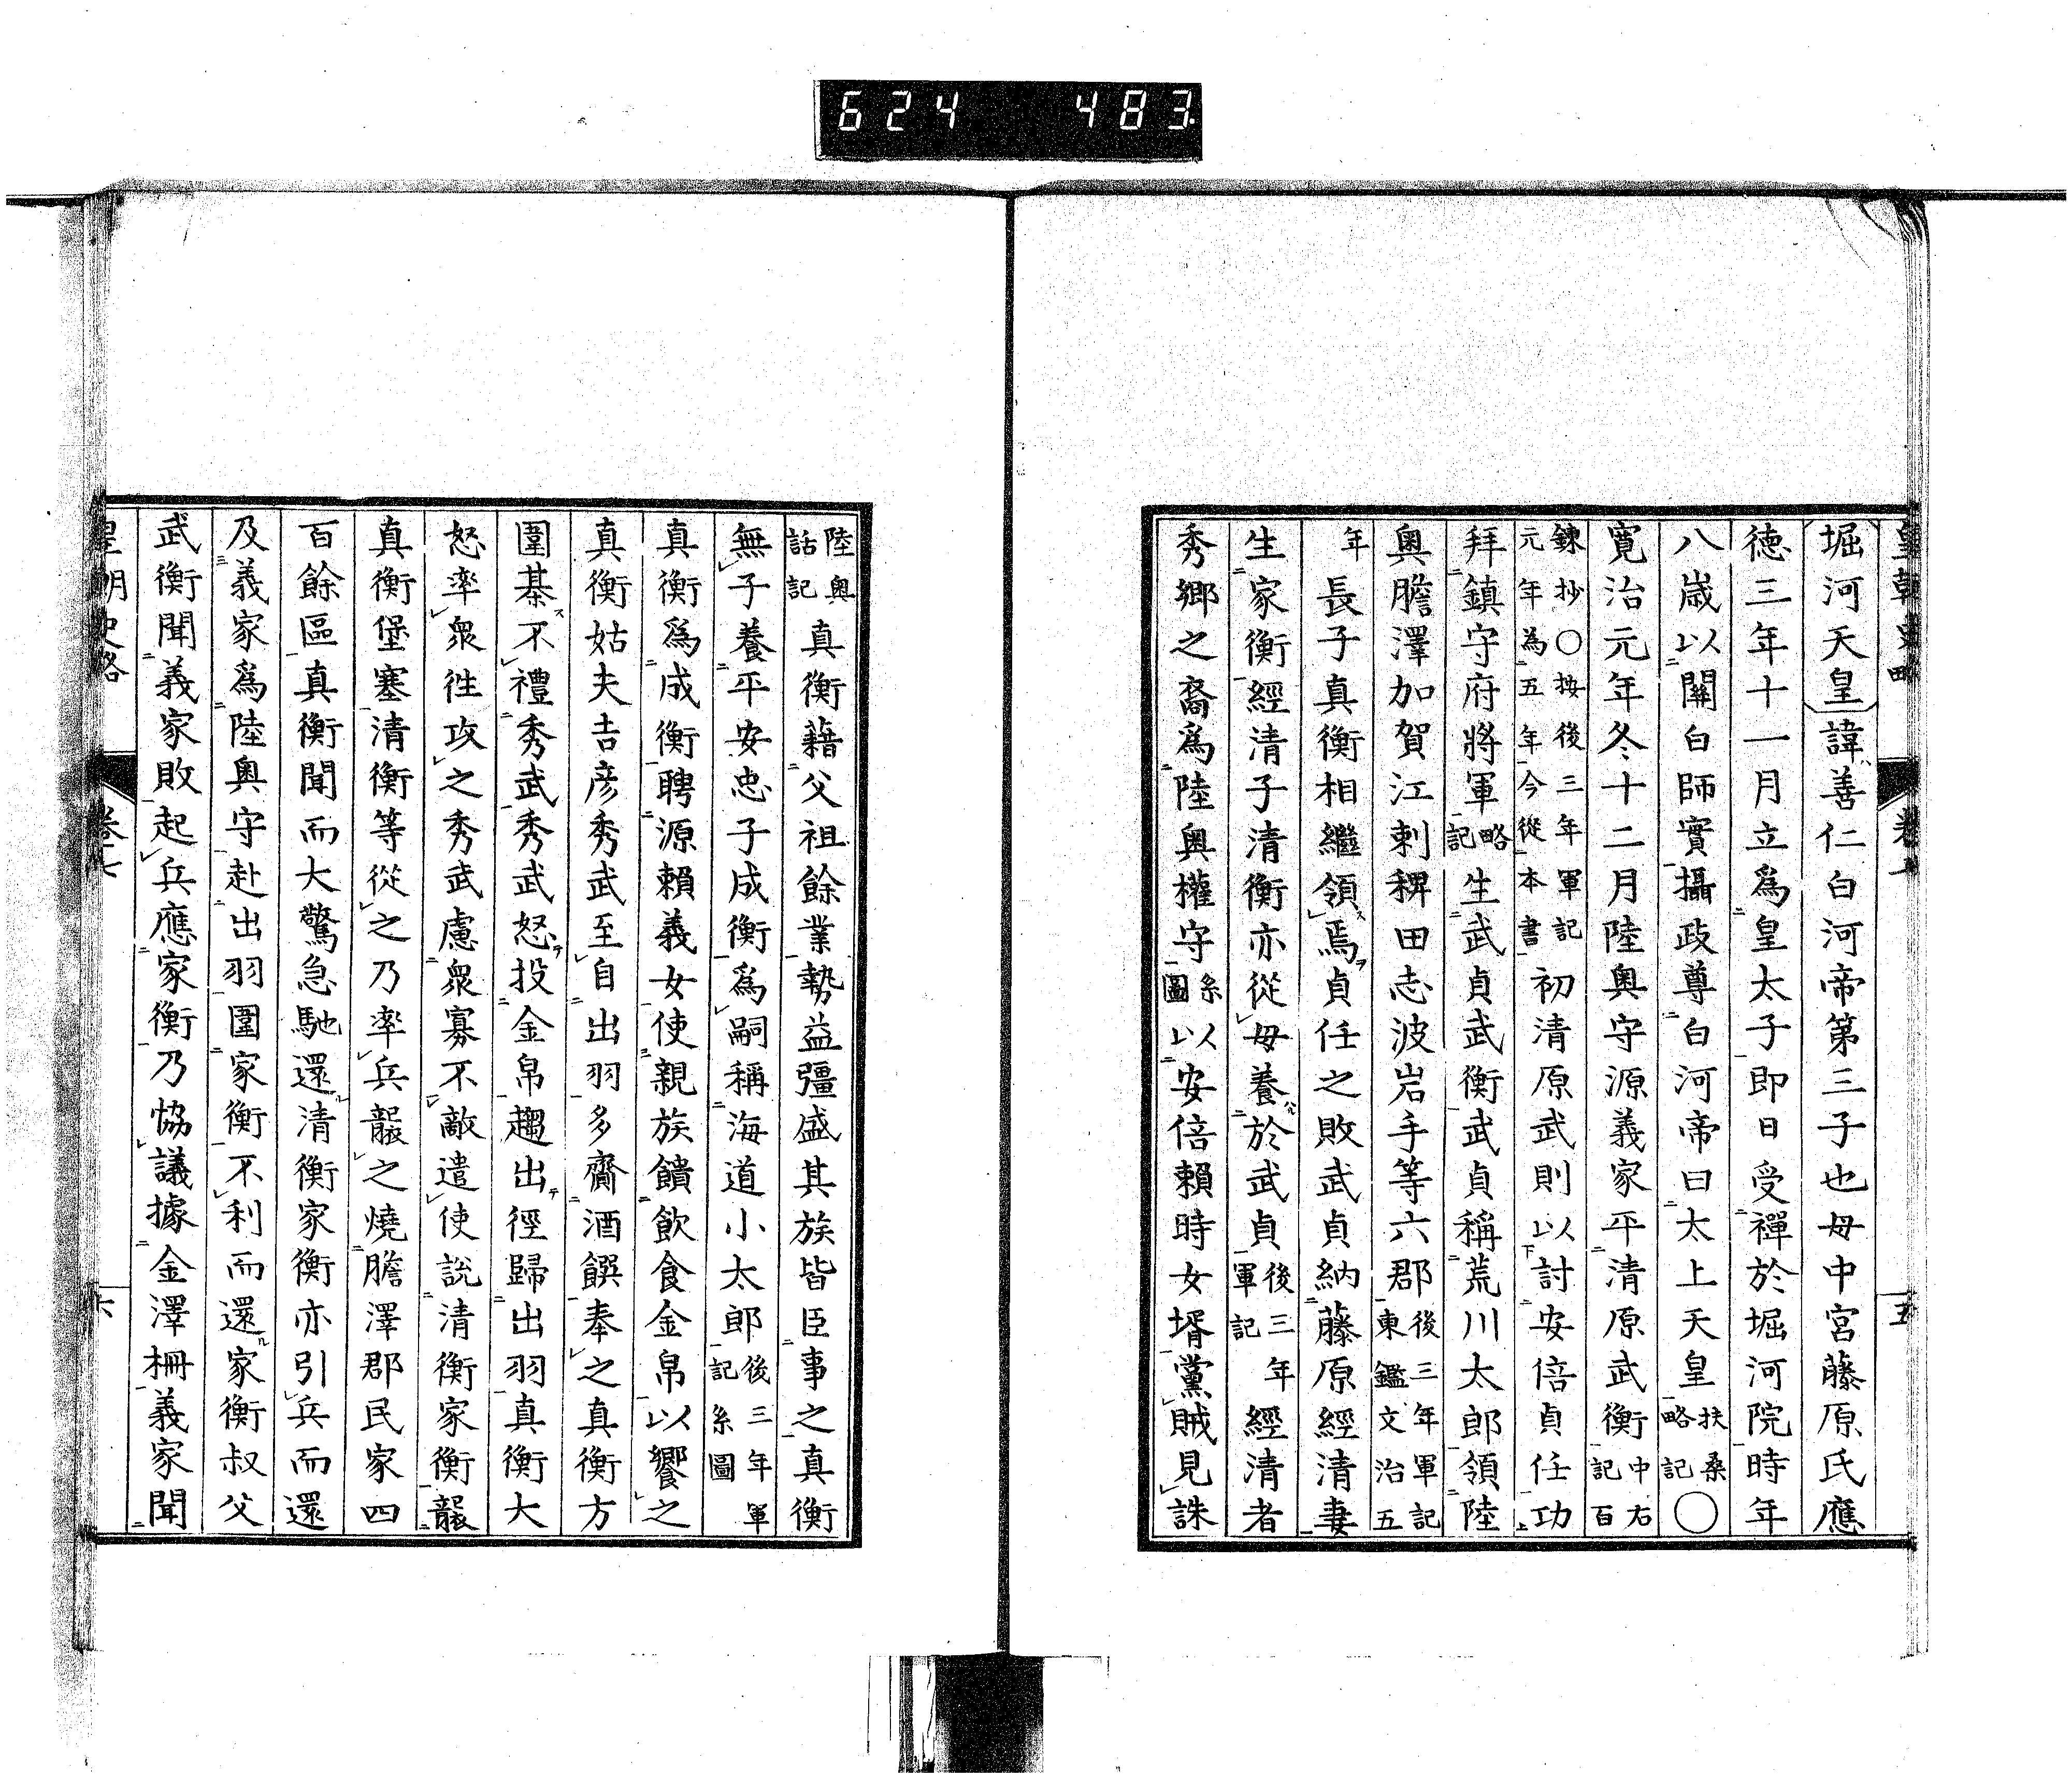 624 483
皇朝史略 卷七 五
堀河天皇諱善仁白河帝第三子也母中宮藤原氏應
徳三年十一月立爲皇太子即日受禪於堀河院時年
八歳以關白師實攝政尊白河帝曰太上天皇扶桑略記〇
寛治元年冬十二月陸奥守源義家平清原武衡中右記百
錬抄〇按後三年軍記元年為五年今從本書初清原武則以討安倍貞任功
拜鎮守府將軍略記生武貞武衡武貞稱荒川太郎領陸
奥膽澤加賀江刺稗田志波岩手等六郡後三年軍記東鑑文治五
年長子真衡相繼領焉貞任之敗武貞納藤原經清妻
生家衡經清子清衡亦從母養於武貞後三年軍記經清者
秀郷之裔爲陸奥權守系圖以安倍頼時女壻黨賊見誅
陸奥話記真衡藉父祖餘業勢益彊盛其族皆臣事之真衡
無子養平安忠子成衡爲嗣稱海道小太郎後三年軍記系圖
真衡爲成衡聘源頼義女使親族饋飲食金帛以饗之
真衡姑夫吉彦秀武至自出羽多齎酒饌奉之真衡方
圍棊不禮秀武秀武怒投金帛趨出徑歸出羽真衡大
怒率衆徃攻之秀武慮衆寡不敵遣使説清衡家衡襲
真衡堡塞清衡等從之乃率兵襲之燒膽澤郡民家四
百餘區真衡聞而大驚急馳還清衡家衡亦引兵而還
及義家爲陸奥守赴出羽圍家衡不利而還家衡叔父
武衡聞義家敗起兵應家衡乃協議據金澤柵義家聞
皇朝史略 卷七 六